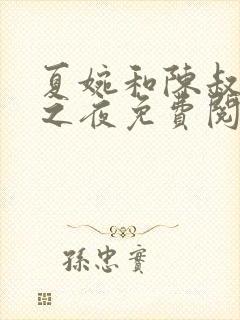 夏婉和陳叔
之夜免費閱
孫忠實